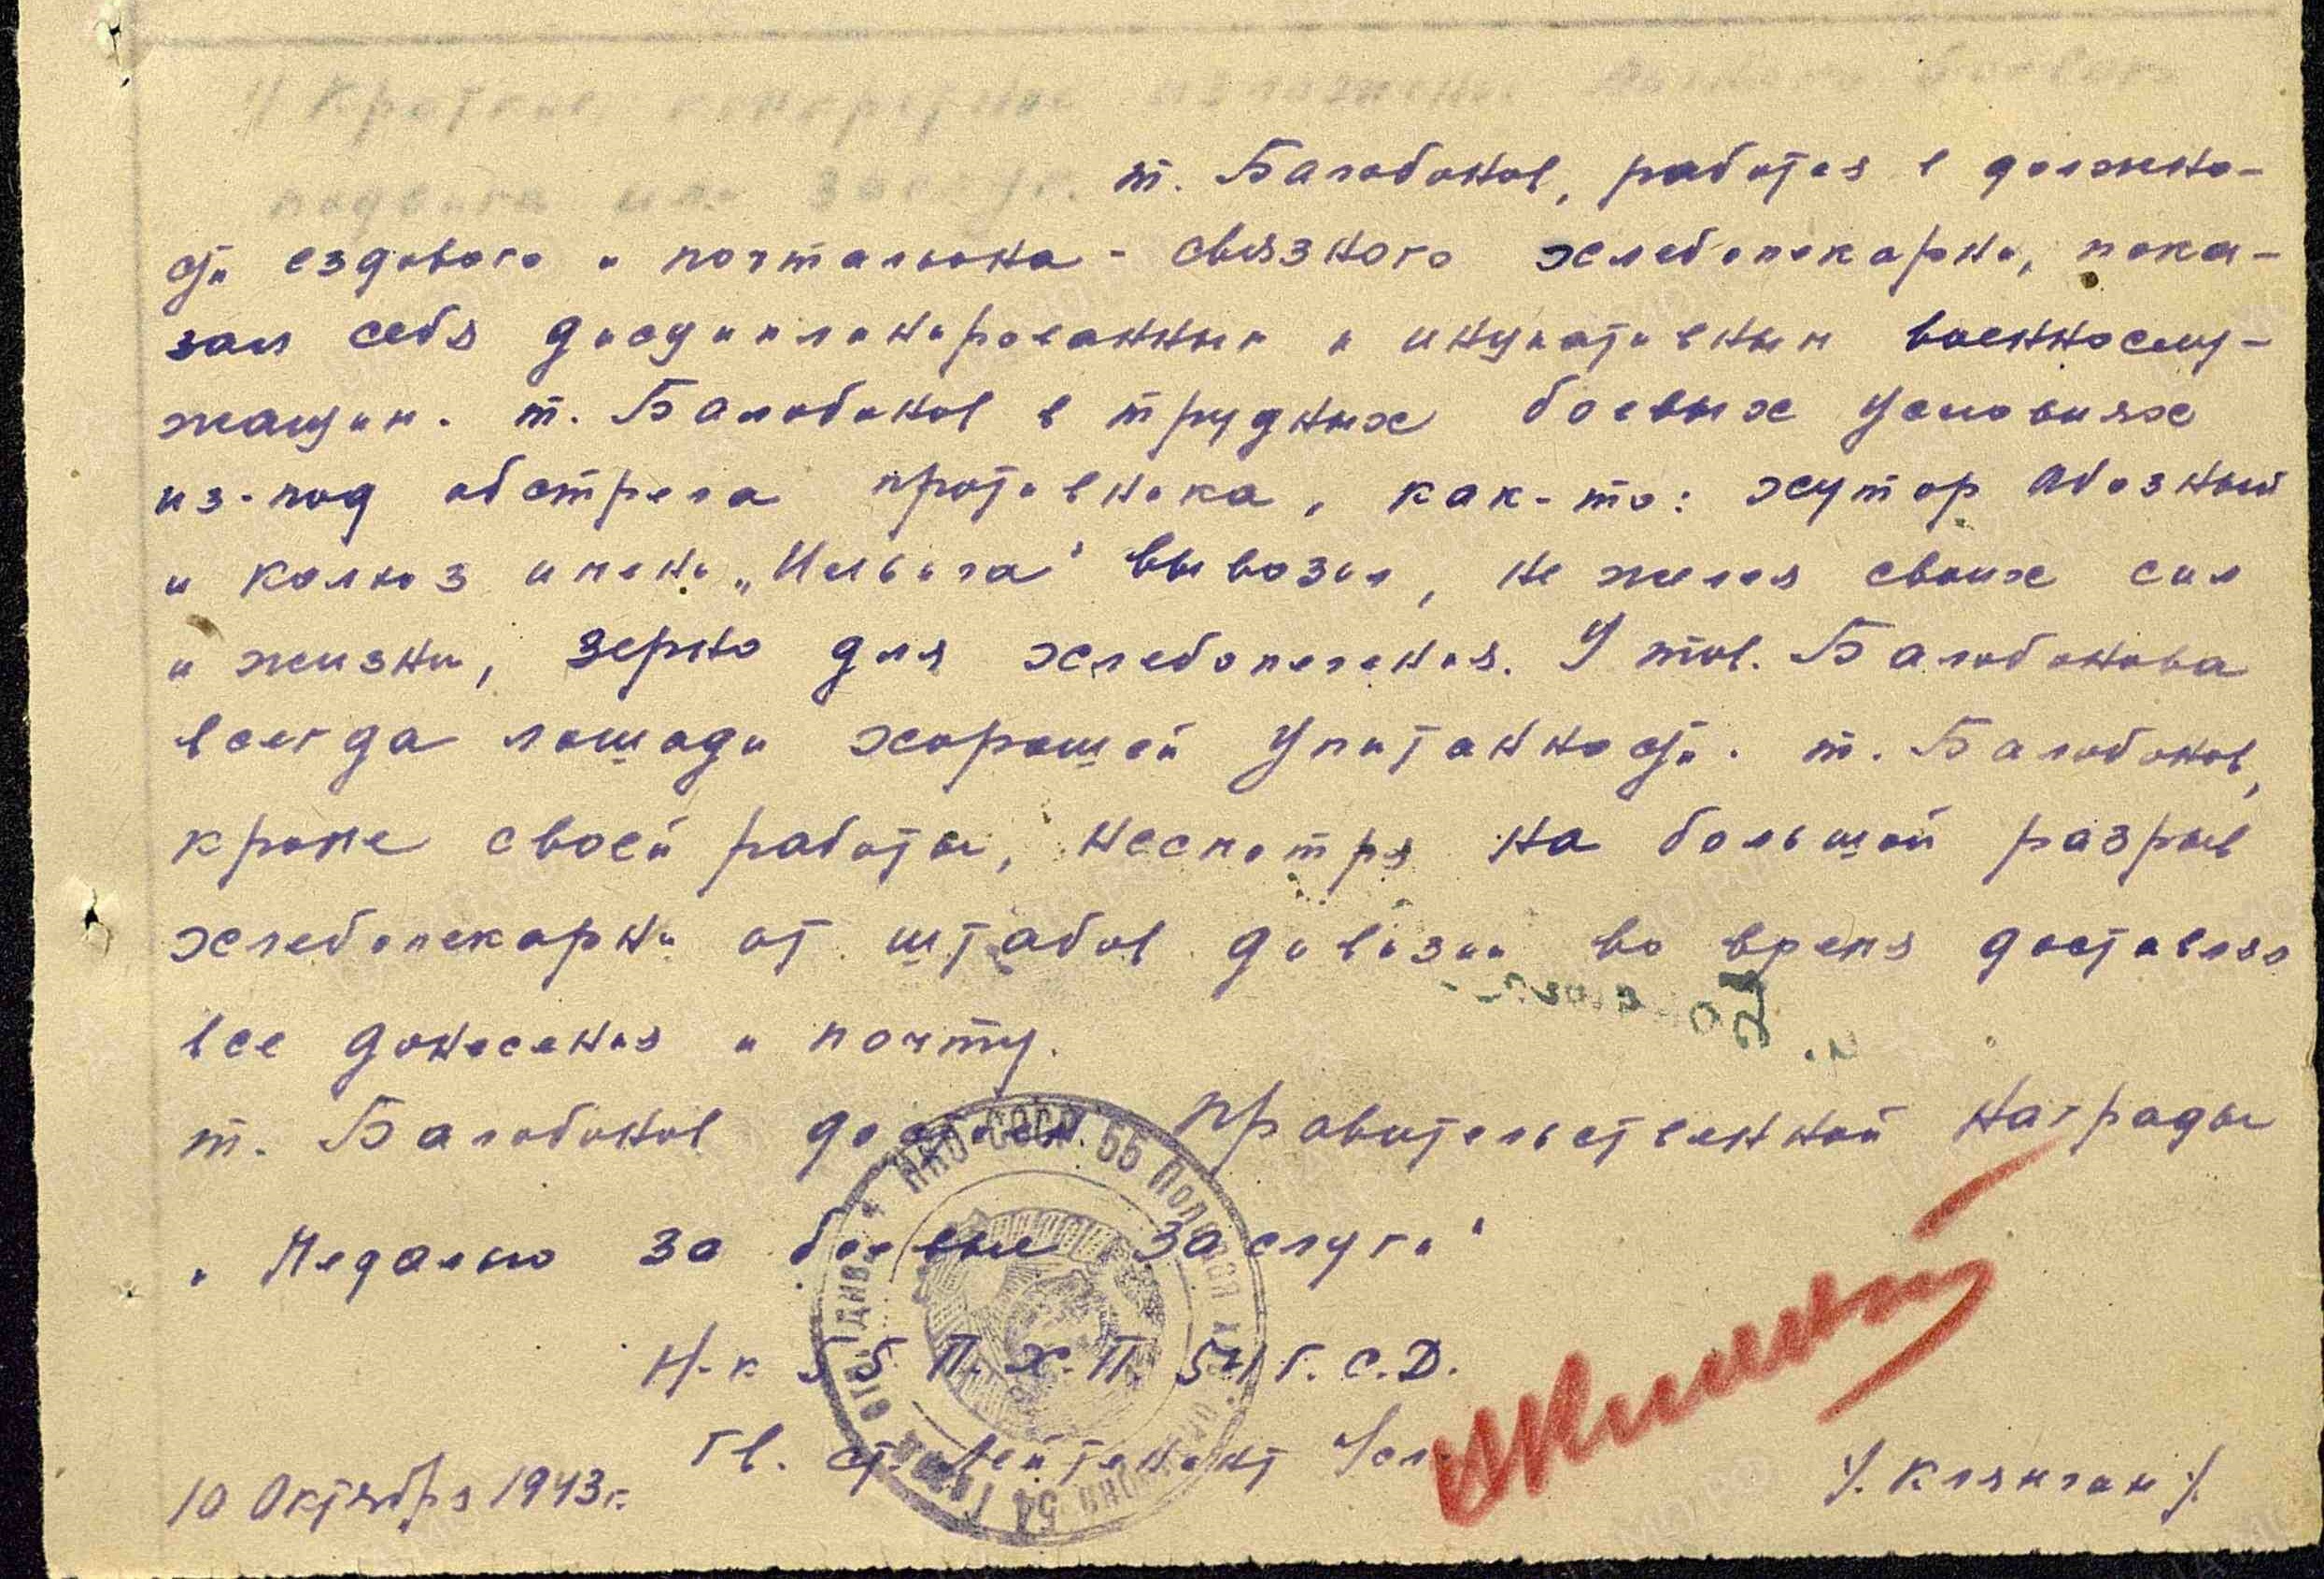 1/ Краткое конкретное изложение личного боевого
подвига или заслуг.
т. Балабонов, работая в должно-
сти ездового и почтальона - связного хлебопекарни, пока-
зал себя дисциплинированным и инициативным военнослу-
жащим. т. Балабонов в трудных боевых условиях
из-под обстрела противника, как-то: хутор Обозный
и колхоз имени „Ильича" вывозил, не жалея своих сил
и жизни, зерно для хлебопечения. У тов. Балабонова
всегда лошади хорошей упитанности. т. Балабонов,
кроме своей работы, несмотря на большой разрыв
хлебопекарни от штабов дивизии во время доставлял
все донесения и почту.
т. Балабонов достоин правительственной награды
„Медалью за боевые заслуги"
Н-к 55 П.Х.П. 54 Г.С.Д.
Гв. ст. лейтенант
/. Клянчан /.
10 Октября 1943 г.
НКО-СССР 55 Полевая
54 Гвард